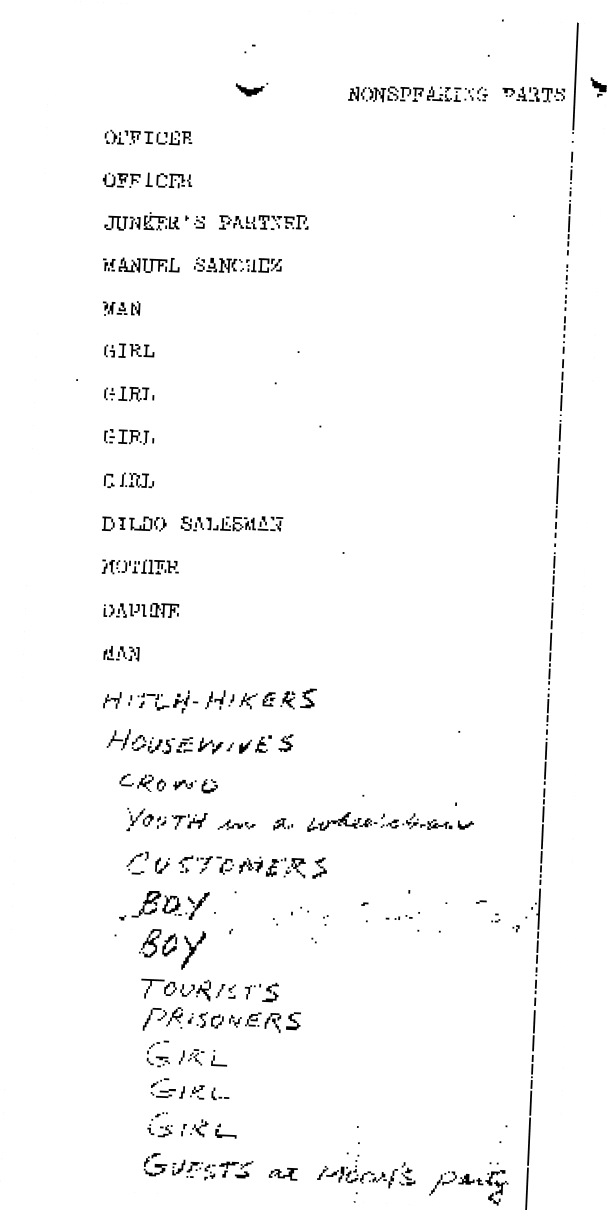 NONSPEAKING PARTS
OFFICER
OFFICER
JUNKER'S PARTNER
MANUEL SANCHEZ
MAN
GIRL
GIRL
GIRL
GIRL
DILDO SALESMAN
MOTHER
DAPHNE
MAN
HITCH-HIKERS
HOUSEWIVES
CROWD
YOUTH in a wheelchair
CUSTOMERS
BOY
BOY
TOURIST'S
PRISONERS
GIRL
GIRL
GIRL
GUESTS at party